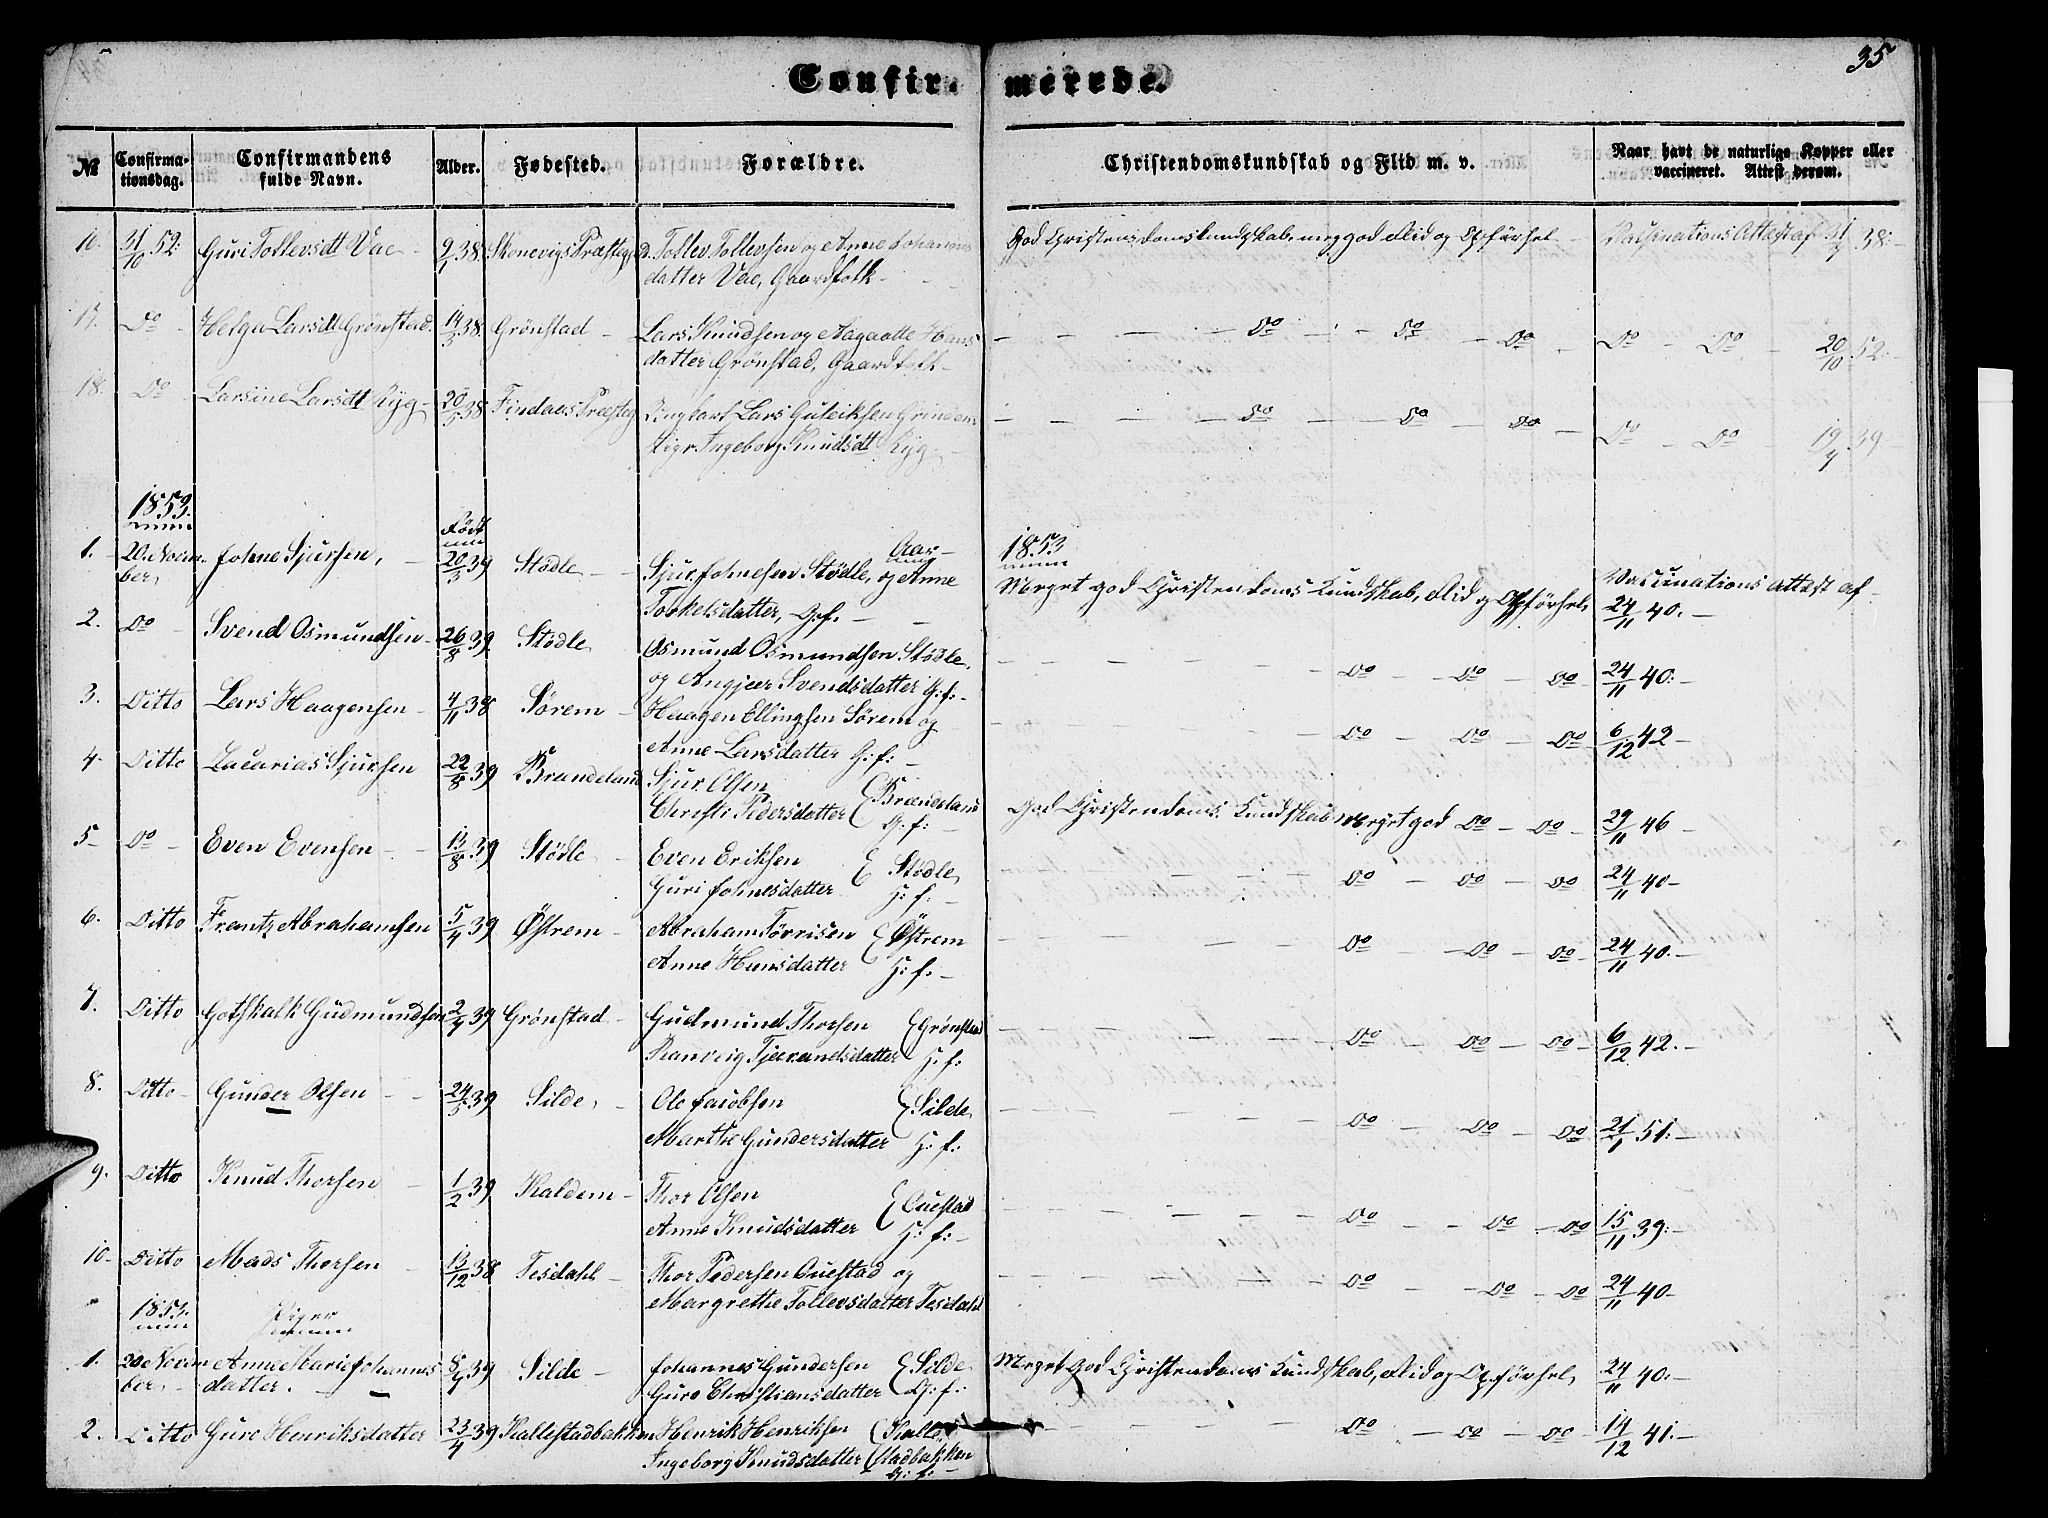 35
Confir- merede.
№ Confirma-tionsdag. Confirmandens fulde Navn. Alder. Fødested. Forældre. Christendomskundskab og Flid m. v. Naar havt de naturlige Kopper eller vaccineret. Attest derom.
16. 31/10 52: Guri Tollevsdt Vae - 9/1 38. Skonevigs Præsteg. Tollev Tollevsen og Anne Johannes God Christendomskundskab, meg god Flid og Opförsel - Vaksinations Attest af 38:-
datter Vae, Gaardfolk -
17. Do - Helga Larsdt Grönstad. 14/3 38. Grönstad - Lars Knudsen og Aagaatte Hans - - - Do - - Do - Do - Do - Do - 20/10 52:-
datter Grönstad, Gaardfolk -
18. Do Larsine Larsdt Ryg - 20/5 38. Findaas Præsteg. Ungkarl Lars Guleiksen Grindem - - - Do - Do - Do - Do - Do - 19/7 39.-
Pige Ingeborg Knudsdt Ryg -
1853. Födt
1. 20. Novem- Johne Sjursen, - 20/3 39 Stödle - Sjur Johnesen Stödle, og Anne 1853
ber, Meget god Christendoms Kundskab, Flid og Opförsel, Vaccinations attest af -
Torkelsdatter, G.f. - 24/11 40. -
2. Do - Svend Osmundsen - 26/8 39. Stödle Osmund Osmundsen Stödle, - - - Do - Do - Do 24/11 40:-
og Angjær Svendsdatter G:f:-
3. Ditto Lars Haagensen - 4/11 38 Sörem - Haagen Ellingsen Sörem og - - - Do - Do - Do 6/12 42 -
Anne Larsdatter G:f: -
4- Ditto Zacarias Sjursen 22/8 39 Brandeland Sjur Olsen Brændeland
Christi Pedersdatter G:f: - God Christendoms Kundskab, meget god Do - Do - 29/11 46 -
5- Do - Even Evensen - - 13/8 39 Stödle - Even Eriksen Stödle, - - - Do - Do - Do 24/11 40-
Guri Johnesdatter H:f: -
6. Ditto Frantz Abrahamsen 5/4 39 Østrem - Abraham Törrisen Østrem - - - Do - Do - Do - 24/11 40. -
Anne Hansdatter H:f: -
7. Ditto Gotskalk Gudmundsen 2/4 39 Grönstad - Gudmund Thorsen Grönstad - - - Do - Do - Do - 6/12 42. -
Ranveig Tjerandsdatter H:f:
8. Ditto - Gunder Olsen - - 24/5 39 Silde, - Ole Jacobsen Silde, - - - Do - Do - Do 21/1 51: -
Marthe Gundersdatter H:f:
9. Ditto Knud Thorsen - 1/2 39 Haldem - Thor Olsen Cuestad - - - Do - - Do - Do 15/11 39:-
Anne Knudsdatter H:f:-
10- Ditto Mads Thorsen - 13/12 38 Tesdahl - Thor Pedersen Cuestad og - - - Do - Do - Do 24/11 40-
Margrethe Tollevsdatter Tesdahl
1853. Piger
1. 20. Novem- Anne Marie Johannes 8/7 39 Silde - Johannes Gundersen Silde Meget god Christendoms Kundskab, Flid og Opförsel, 24/11 40: -
ber, - datter. - Guro Christiansdatter G:f:
2. Ditto Guro Henriksdatter 23/4 39 Kallestadbakken Henrik Henriksen Kalle- - - Do - Do - Do 14/12 41. -
Ingeborg Knudsdatter stadbakken
G:f:-